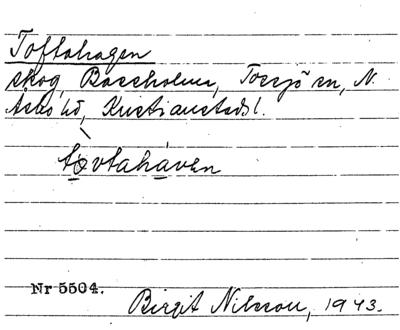 Toftahagen
skog, Bassholma, Tossjö sn, N.
Åsbo hd, Kristianstads l.
tovtahaven
Nr 5504.
Birgit Nilsson, 1943.